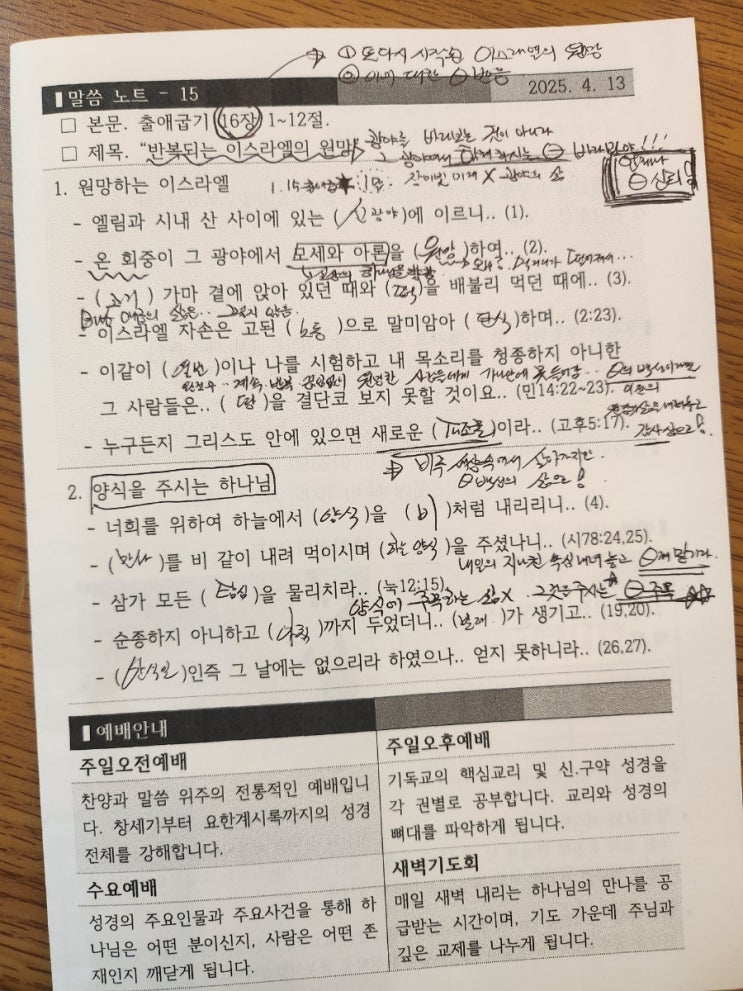 ① 또다시 시작된 이스라엘의 원망
② 이에 대한 ㊀ 반응
말씀 노트 - 15
2025. 4. 13
□ 본문. 출애굽기 16장 1~12절.
□ 제목. "반복되는 이스라엘의 원망"
광야를 바라보는 것이 아니라
광야에서 함께하시는 ㊀ 바라봐야!!!
언제나
㊀ 신뢰
1. 원망하는 이스라엘
- 엘림과 시내 산 사이에 있는 (신 광야)에 이르니.. (1).
- 온 회중이 그 광야에서 모세와 아론을 (원망)하여.. (2).
- (고기) 가마 곁에 앉아 있던 때와 (떡)을 배불리 먹던 때에.. (3).
- 이스라엘 자손은 고된 (노동)으로 말미암아 (탄식)하며.. (2:23).
- 이같이 (열 번)이나 나를 시험하고 내 목소리를 청종하지 아니한
그 사람들은.. (땅)을 결단코 보지 못할 것이요.. (민14:22~23).
- 누구든지 그리스도 안에 있으면 새로운 (피조물)이라.. (고후5:17).
감사 삶으로!
비록 세상속에서 살아가지만
㊀백성의 삶으로!
2. 양식을 주시는 하나님
- 너희를 위하여 하늘에서 (양식)을 (비)처럼 내리리니.. (4).
- (만나)를 비 같이 내려 먹이시며 (하늘 양식)을 주셨나니.. (시78:24,25).
내일의 지나친 욕심 내려놓고 ㊀께 맡기라.
- 삼가 모든 (탐심)을 물리치라.. (눅12:15).
양식에 주목하는 삶X 그것을 주시는 ㊀ 주목
- 순종하지 아니하고 (아침)까지 두었더니.. (벌레)가 생기고.. (19,20).
- (안식일)인즉 그 날에는 없으리라 하였으나.. 얻지 못하니라.. (26,27).
예배안내
주일오전예배
찬양과 말씀 위주의 전통적인 예배입니
다. 창세기부터 요한계시록까지의 성경
전체를 강해합니다.
주일오후예배
기독교의 핵심교리 및 신.구약 성경을
각 권별로 공부합니다. 교리와 성경의
뼈대를 파악하게 됩니다.
수요예배
성경의 주요인물과 주요사건을 통해 하
나님은 어떤 분이신지, 사람은 어떤 존
재인지 깨닫게 됩니다.
새벽기도회
매일 새벽 내리는 하나님의 만나를 공
급받는 시간이며, 기도 가운데 주님과
깊은 교제를 나누게 됩니다.